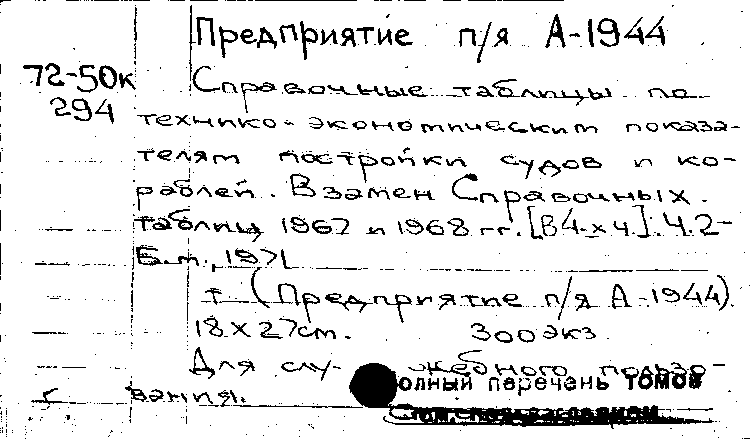 Предприятие п/я А-1944
72-50к
294
Справочные таблицы по
технико-экономическим показа-
телям постройки судов и ко-
раблей. Взамен Справочных
таблиц 1967 и 1968 гг. [В 4-х ч]. Ч.2-
Б.м., 1971
т (Предприятие п/я А-1944)
18 х 27см. 300экз
Для слу- жебного пользо-
вания.
олный перечань томов
г